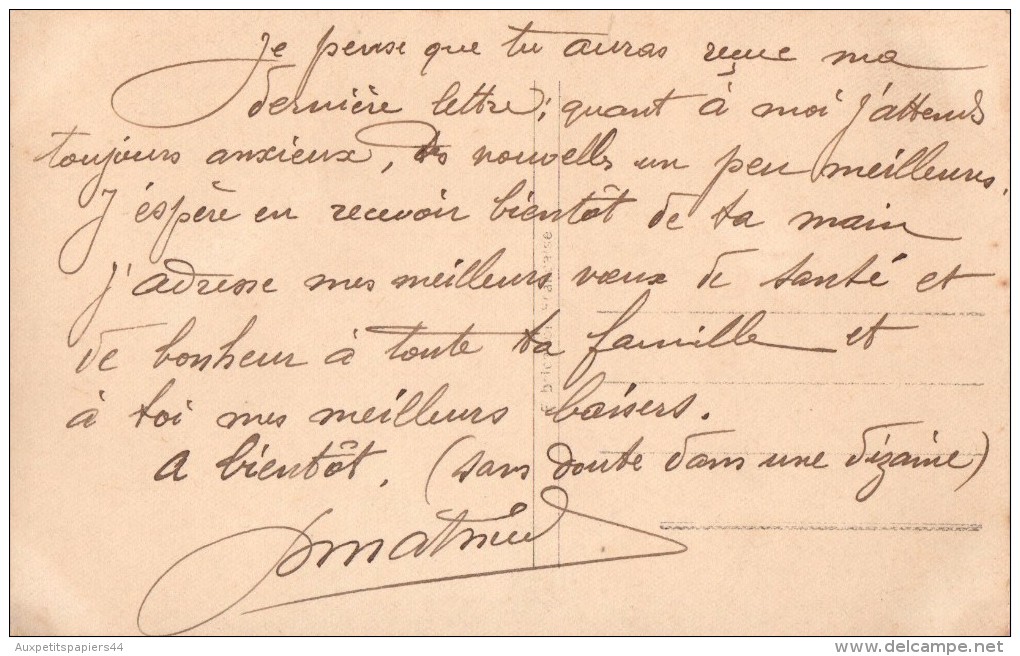 Je pense que tu auras reçue ma
dernière lettre; quant à moi j'attends
toujours anxieux, des nouvelles un peu meilleures.
J'éspère en recevoir bientôt de ta main
J'adresse mes meilleurs vœux de santé et
de bonheur à toute ta famille et
à toi mes meilleurs baisers.
A bientôt. (sans doute dans une dizaine)
Fabrication Française
Auxpetitspapiers44
www.delcampe.net